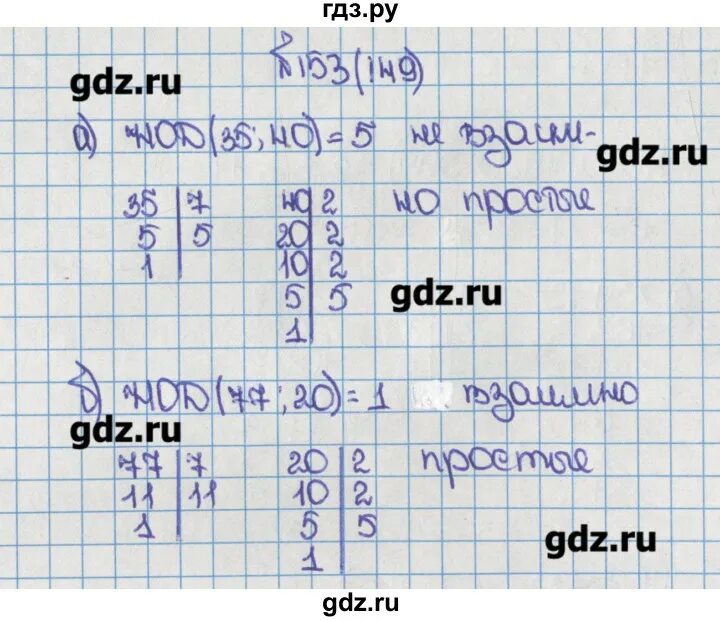 гдз.ру
№153(149)
gdz.ru
а) НОД(35;40)=5 не взаим-
gdz.ru
35|7 40|2 но простые
5|5 20|2
1| 10|2
5|5 gdz.ru
1|
б) НОД(77;20)=1 взаимно
gdz.ru
77|7 20|2 простые
11|11 10|2
1| 5|5 gdz.ru
1|
gdz.ru